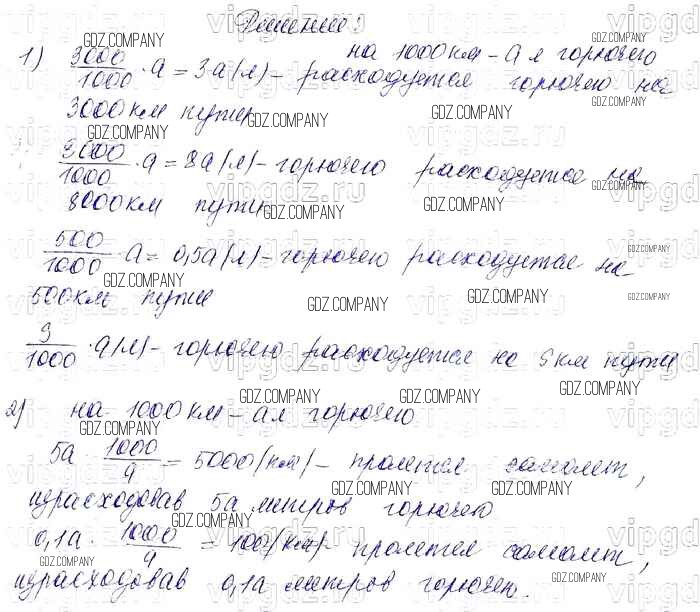 Решение:
на 1000 км - а л горючего
1) 3000/1000 · а = 3а (л) - расходуется горючего на
3000 км пути
8000/1000 · а = 8а (л) - горючего расходуется на
8000 км пути
500/1000 · а = 0,5а (л) - горючего расходуется на
500 км пути
S/1000 · а (л) - горючего расходуется на S км пути
2) на 1000 км - а л горючего
5а · 1000/а = 5000 (км) - пролетел самолет,
израсходовав 5а литров горючего
0,1а · 1000/а = 100 (км) - пролетел самолет,
израсходовав 0,1а литров горючего.
GDZ.COMPANY
vipgdz.ru